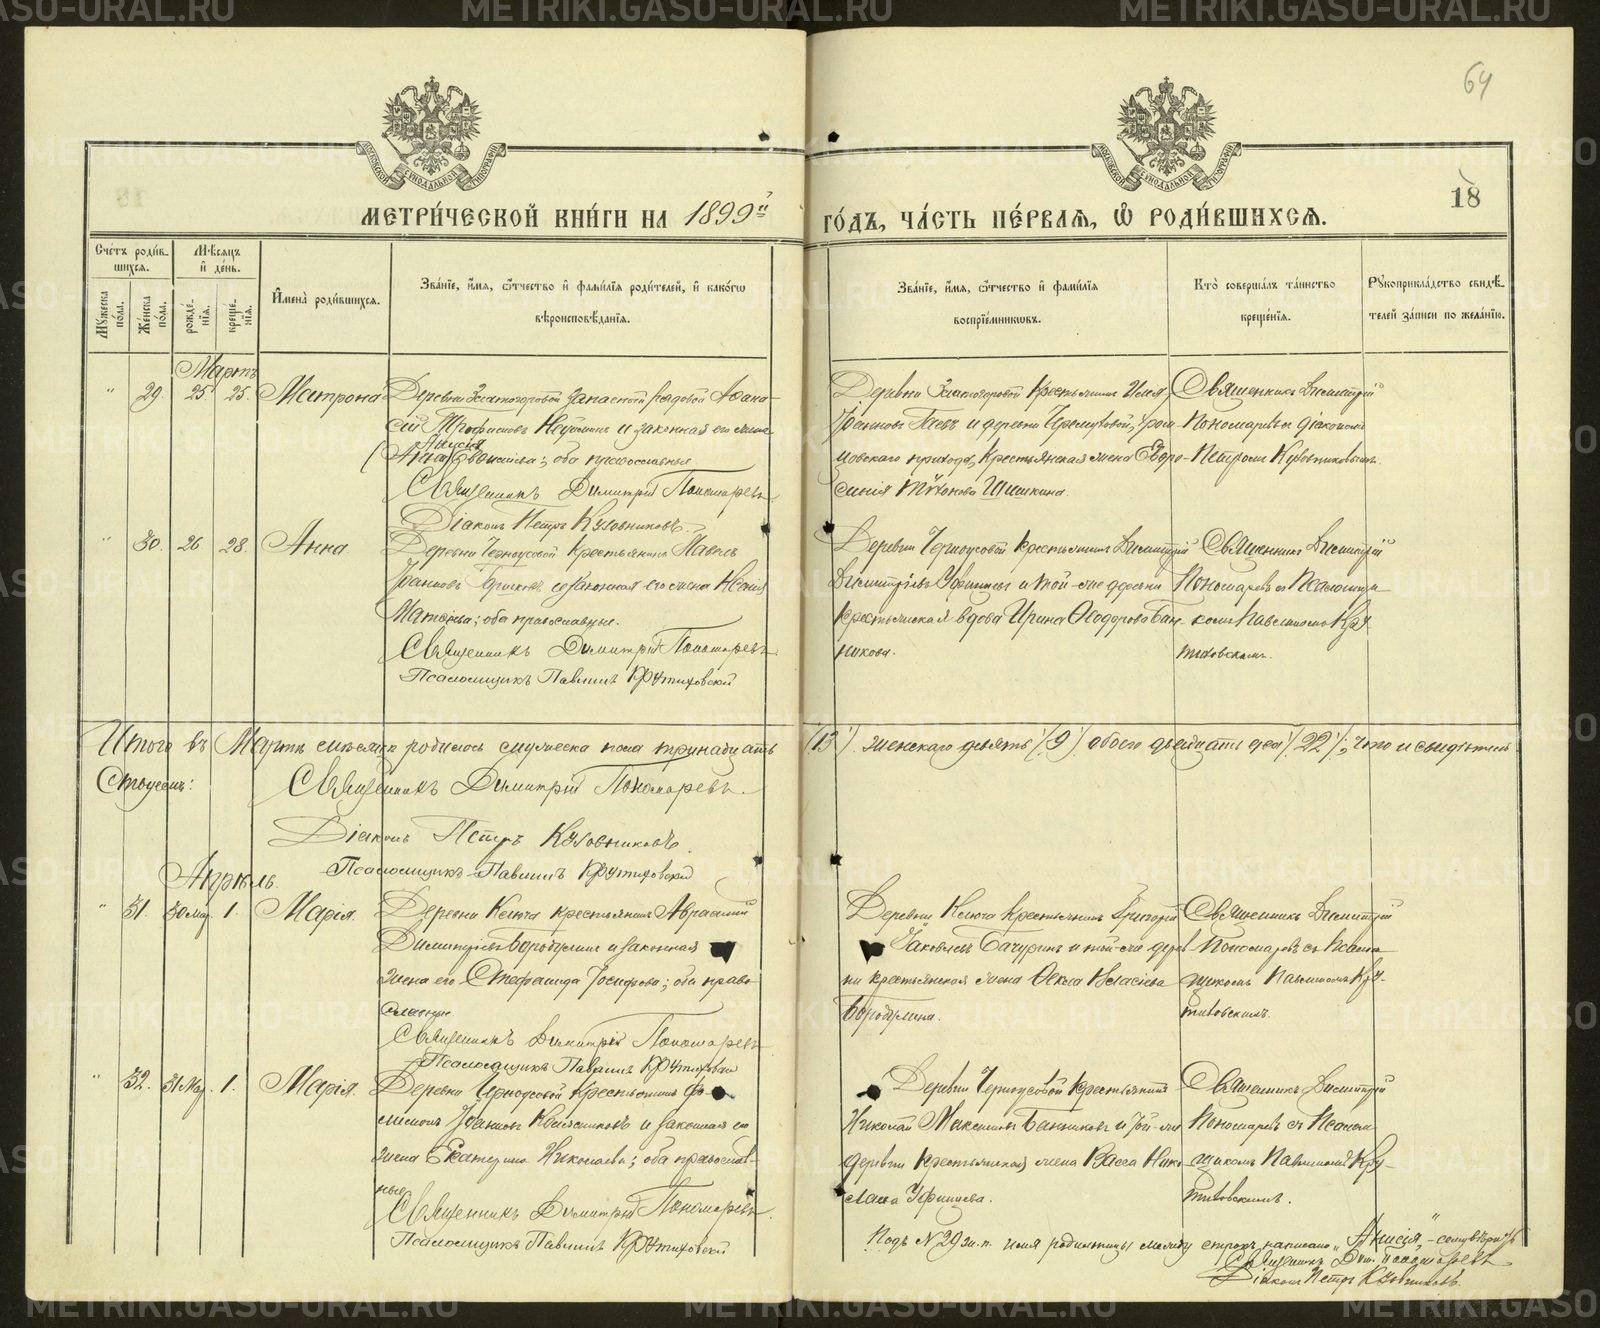 METRIKI.GASO-URAL.RU
64
18
МОСКОВСКОЙ СУНОДАЛЬНОЙ ТИПОГРАФIИ
МОСКОВСКОЙ СУНОДАЛЬНОЙ ТИПОГРАФIИ
МЕТРИ́ЧЕСКОЙ КНИ́ГИ НА 1899й ГО́ДЪ, ЧА́СТЬ ПЕ́РВАѦ, Ѡ РОДИ́ВШИХСѦ.
Сче́тъ роди́вшихсѧ.
Мꙋжеска по́ла.
Же́нска по́ла.
Мѣ́сѧцъ и҆ де́нь.
рожде́нїѧ.
креще́нїѧ.
И҆мена̀ роди́вшихсѧ.
Зва́нїе, и҆́мѧ, ѻ҆́тчество и҆ фами́лїѧ роди́телей, и҆ како́гѡ вѣроисповѣ́данїѧ.
Зва́нїе, и҆́мѧ, ѻ҆́тчество и҆ фами́лїѧ воспрїе́мникѡвъ.
Кто̀ соверша́лъ та́инство креще́нїѧ.
Рꙋкоприкла́дство свидѣ́телей за́писи по жела́нїю.
Мартъ
" 29. 25 25. Матрона
Деревни Златогоровой запасной рядовой Афана-
сій Трофимовъ и законная его жена
Анисія
оба православные
Священникъ Димитрій Пономаревъ
Діаконъ Петръ Кузовниковъ.
Деревни Златогоровой крестьянинъ Илія
Іоанновъ Гаевъ и деревни
мовскаго прихода, крестьянская жена Евфро-
синія Шишкина.
Священникъ Димитрій
Пономаревъ съ діакономъ
Петромъ Кузовниковымъ.
" 30. 26 28. Анна
Деревни Черноусовой крестьянинъ Павелъ
Іоанновъ и законная его жена Ксенія
оба православные.
Священникъ Димитрій Пономаревъ
Псаломщикъ Павлинъ Крутиховскій
Деревни Черноусовой крестьянинъ Димитрій
Димитріевъ Уфинцевъ и той-же деревни
крестьянская вдова Ирина Ѳеодорова Бан-
никова.
Священникъ Димитрій
Пономаревъ съ Псаломщи-
комъ Павлиномъ Кру-
тиховскимъ.
Итого въ Мартѣ мѣсяцѣ родилось мужеска пола тринадцать /13/. женскаго девять /9/ обоего двадцать два /22/, что и свидѣтель-
ствуемъ:
Священникъ Димитрій Пономаревъ.
Діаконъ Петръ Кузовниковъ.
Псаломщикъ Павлинъ Крутиховскій
Апрѣль.
" 31. 30 Мар. 1. Марія.
Деревни Ключа крестьянинъ Авраамій
Димитріевъ Воробулинъ и законная
жена его Стефанида Іосифова; оба право-
славные
Священникъ Димитрій Пономаревъ
Псаломщикъ Павлинъ Крутиховскій
Деревни Ключа крестьянинъ Григорій
Іаковлевъ Бачуринъ и той-же дерев-
ни крестьянская жена Ѳекла Власіева
Священникъ Димитрій
Пономаревъ съ Псалом-
щикомъ Павлиномъ Кру-
тиховскимъ.
" 32. 31 Мар. 1. Марія.
Деревни Черноусовой крестьянинъ Фи-
лимонъ Іоанновъ и законная его
жена Екатерина Николаева; оба православ-
ные
Священникъ Димитрій Пономаревъ.
Псаломщикъ Павлинъ Крутиховскій
Деревни Черноусовой крестьянинъ
Николай Максимовъ Банниковъ и той-же
деревни крестьянская жена Васса Нико-
лаева Уфинцева.
Священникъ Димитрій
Пономаревъ съ Псалом-
щикомъ Павлиномъ Кру-
тиховскимъ.
Подъ № 29 ж. п. имя родильницы между строкъ написано „Анисія“,
Священникъ Дим. Пономаревъ
Діаконъ Петръ Кузовниковъ.